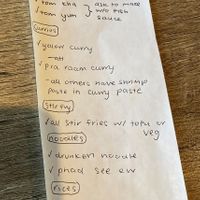 ✓ tom kha } ask to make
✓ tom yum w/o fish
sauce
curries
✓ yellow curry
✓ pra ram curry
- all others have shrimp
paste in curry paste
stir fry
✓ all stir fries w/ tofu or
veg
noodles
✓ drunken noodle
✓ phad see ew
rices